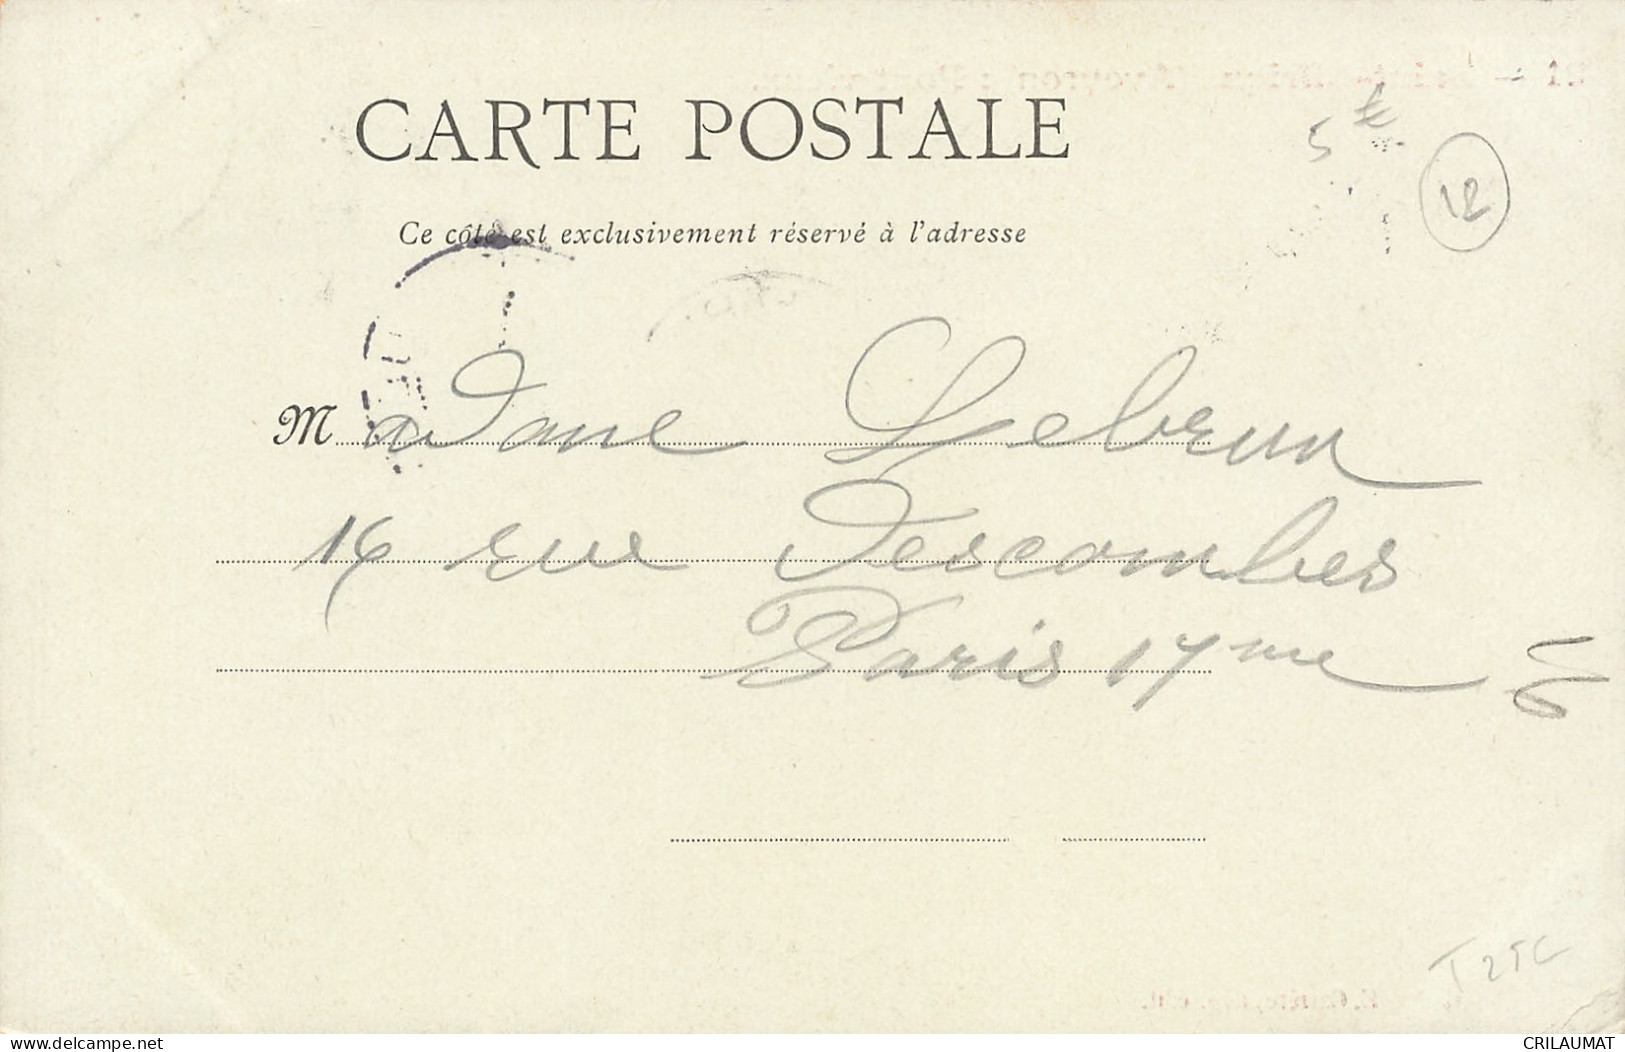 CARTE POSTALE
5 €
12
Ce côté est exclusivement réservé à l'adresse
Madame Lebrun
16 rue Descombes
Paris 17me
T25C
www.delcampe.net
CRILAUMAT